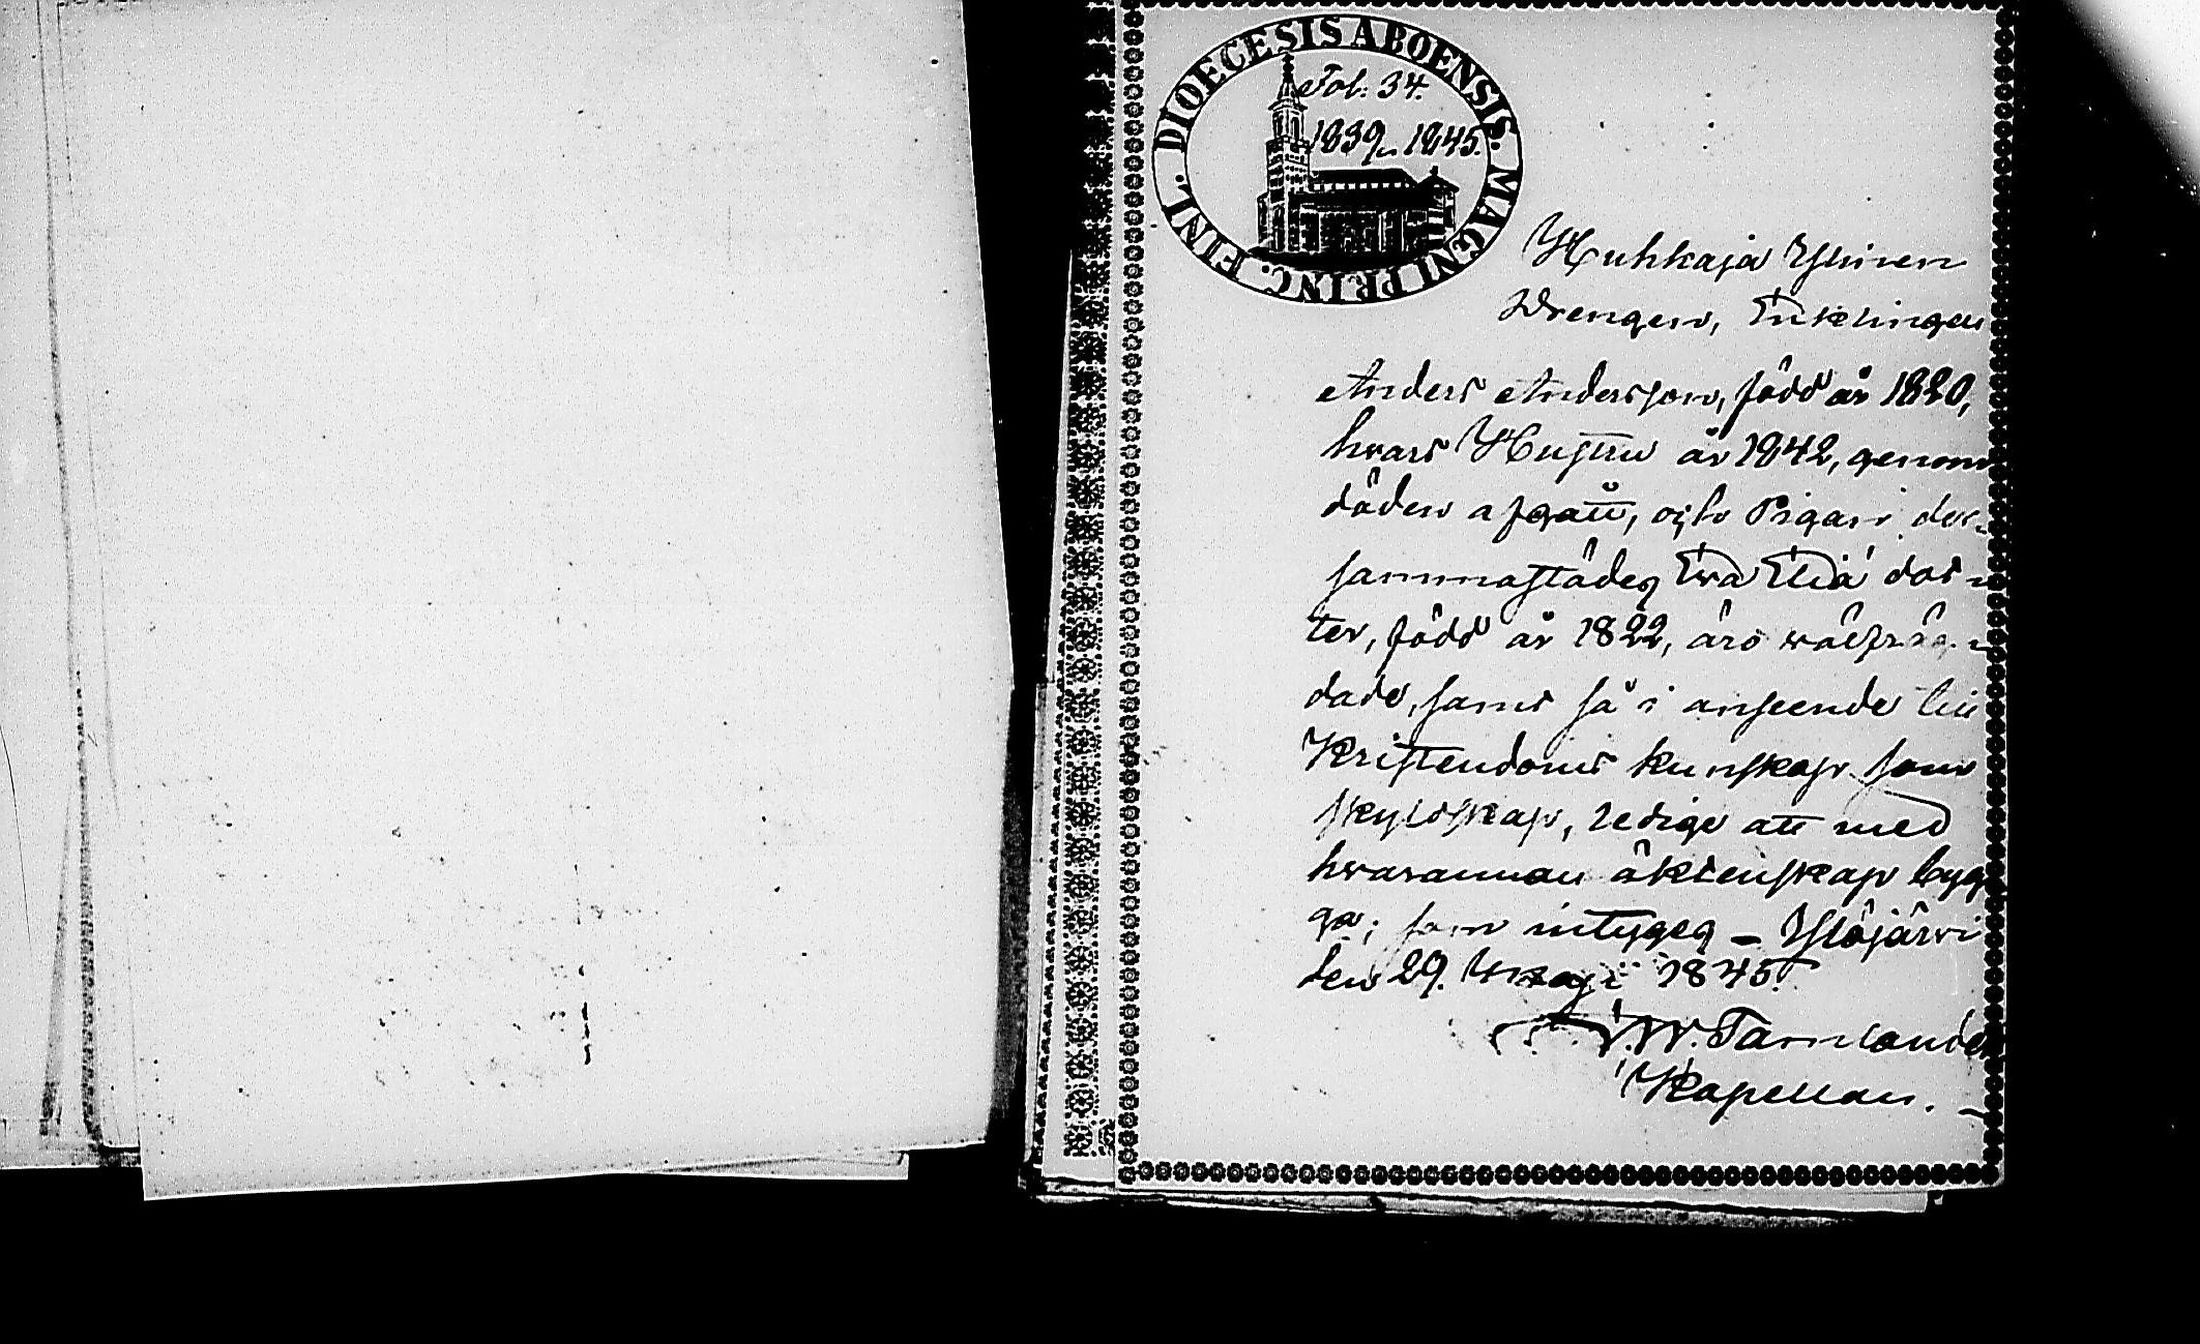 DIOECESIS ABOENSIS. MAGNI PRINC. FINL.
Fol: 34.
1839–1845.
Huhkaja Ylinen
Drengen, Enklingen
Anders Andersson, född år 1820,
hvars Hustru år 1842, genom
döden afgått, och Pigan der-
sammastädes Ewa Elia dot-
ter, född år 1822, äro wälfräg-
dade, samt så i anseende till
Kristendoms kunskap som
skyldskap, ledige att med
hvarannan äktenskap byg-
ga; som intygas – Ylöjärvi
den 29. Maji 1845.
W. Tamlander
Kapellan.